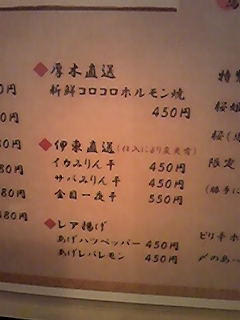 ◆厚木直送
新鮮コロコロホルモン焼
450円
◆伊東直送(仕入により変更有)
イカみりん干 450円
サバみりん干 450円
金目一夜干 550円
◆レア揚げ
あげハツペッパー 450円
あげレバレモン 450円
0円
0円
80円
80円
80円
480円
特
桜
桜(
限定
(勝手に
ピリ辛ホ
〆のあ